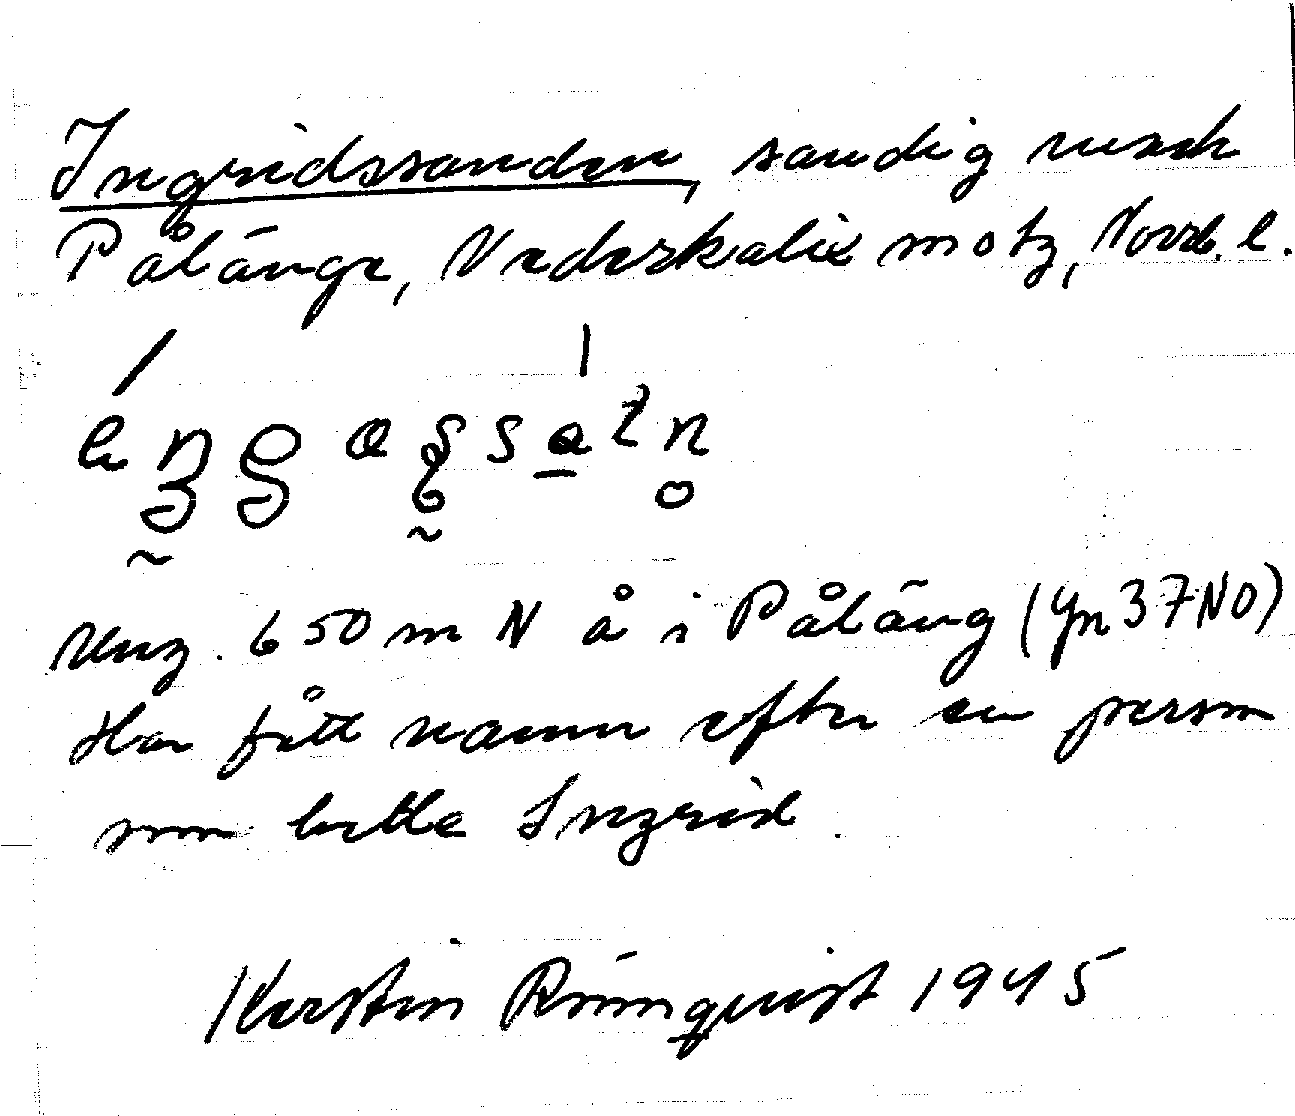 Ingridssanden, sandig mark
Pålänge, Nederkalix sn o tg, Norrb. l.
Ung. 650 m N å i Påläng (Yn 37NO)
Har fått namn efter en person
som hette Ingrid.
Kerstin Rönnquist 1945